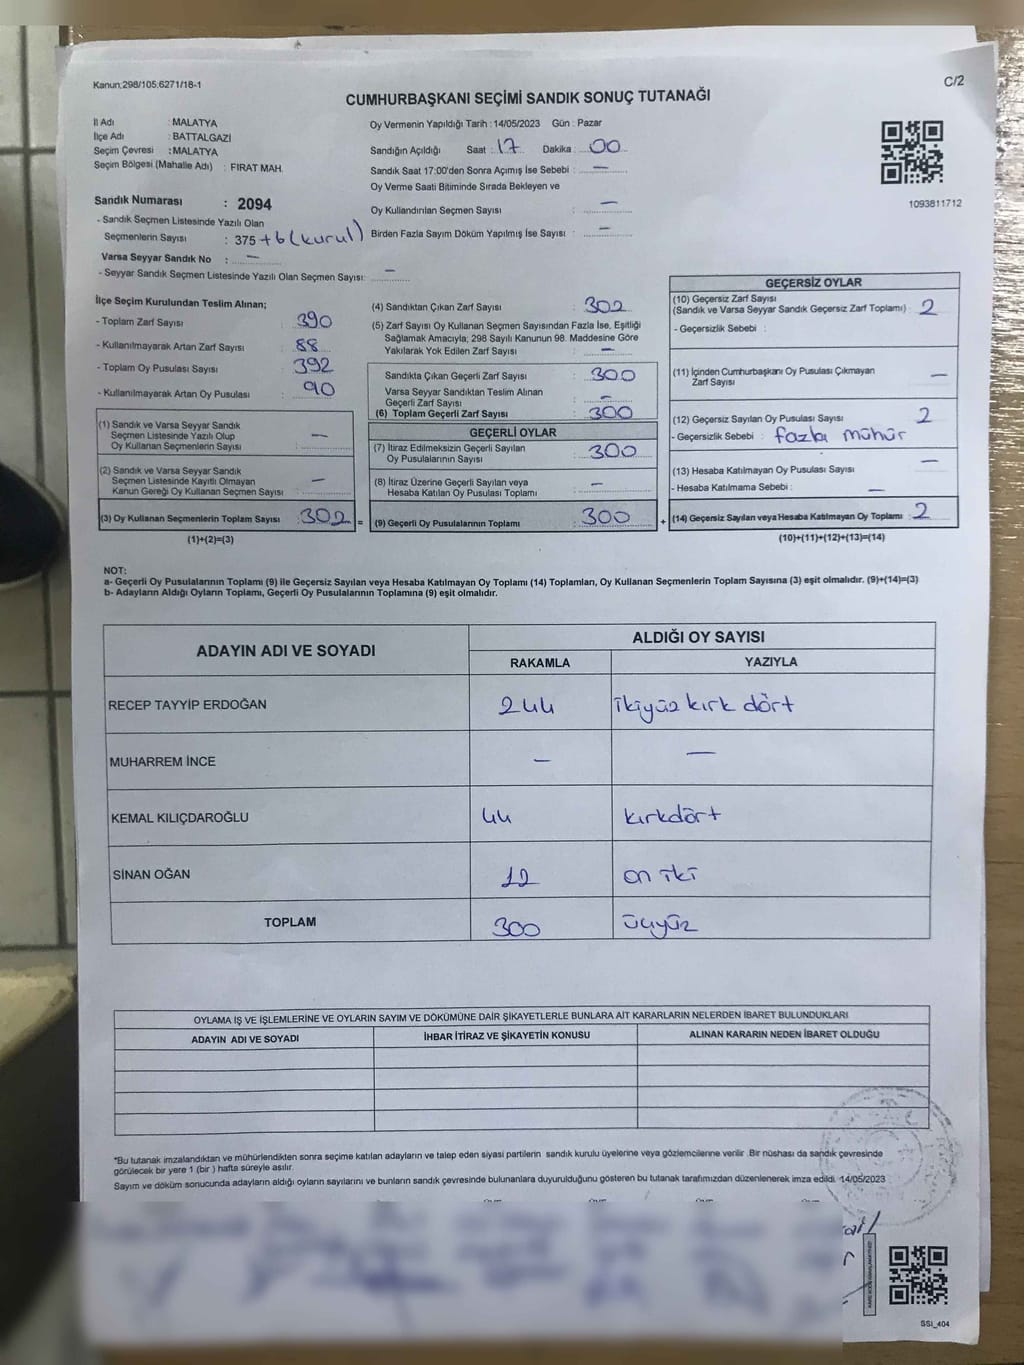 Kanun:298/105;6271/18-1
C/2
CUMHURBAŞKANI SEÇİMİ SANDIK SONUÇ TUTANAĞI
İl Adı : MALATYA
İlçe Adı : BATTALGAZİ
Seçim Çevresi : MALATYA
Seçim Bölgesi (Mahalle Adı) : FIRAT MAH.
Oy Vermenin Yapıldığı Tarih : 14/05/2023 Gün : Pazar
Sandığın Açıldığı Saat : 17 Dakika : 00
Sandık Saat 17:00'den Sonra Açımış İse Sebebi : —
Oy Verme Saati Bitiminde Sırada Bekleyen ve
Oy Kullandırılan Seçmen Sayısı : —
Birden Fazla Sayım Döküm Yapılmış İse Sayısı : —
1093811712
Sandık Numarası : 2094
- Sandık Seçmen Listesinde Yazılı Olan
Seçmenlerin Sayısı : 375 +6 (kurul)
Varsa Seyyar Sandık No : —
- Seyyar Sandık Seçmen Listesinde Yazılı Olan Seçmen Sayısı: —
İlçe Seçim Kurulundan Teslim Alınan;
- Toplam Zarf Sayısı : 390
- Kullanılmayarak Artan Zarf Sayısı : 88
- Toplam Oy Pusulası Sayısı : 392
- Kullanılmayarak Artan Oy Pusulası : 90
(1) Sandık ve Varsa Seyyar Sandık
Seçmen Listesinde Yazılı Olup
Oy Kullanan Seçmenlerin Sayısı : —
(2) Sandık ve Varsa Seyyar Sandık
Seçmen Listesinde Kayıtlı Olmayan
Kanun Gereği Oy Kullanan Seçmen Sayısı : —
(3) Oy Kullanan Seçmenlerin Toplam Sayısı : 302 =
(1)+(2)=(3)
(4) Sandıktan Çıkan Zarf Sayısı : 302
(5) Zarf Sayısı Oy Kullanan Seçmen Sayısından Fazla İse, Eşitliği
Sağlamak Amacıyla, 298 Sayılı Kanunun 98. Maddesine Göre
Yakılarak Yok Edilen Zarf Sayısı : —
Sandıkta Çıkan Geçerli Zarf Sayısı : 300
Varsa Seyyar Sandıktan Teslim Alınan
Geçerli Zarf Sayısı : —
(6) Toplam Geçerli Zarf Sayısı : 300
GEÇERLİ OYLAR
(7) İtiraz Edilmeksizin Geçerli Sayılan
Oy Pusulalarının Sayısı : 300
(8) İtiraz Üzerine Geçerli Sayılan veya
Hesaba Katılan Oy Pusulası Toplamı : —
(9) Geçerli Oy Pusulalarının Toplamı : 300 +
GEÇERSİZ OYLAR
(10) Geçersiz Zarf Sayısı
(Sandık ve Varsa Seyyar Sandık Geçersiz Zarf Toplamı) : 2
- Geçersizlik Sebebi :
(11) İçinden Cumhurbaşkanı Oy Pusulası Çıkmayan
Zarf Sayısı —
(12) Geçersiz Sayılan Oy Pusulası Sayısı : 2
- Geçersizlik Sebebi : fazla mühür
(13) Hesaba Katılmayan Oy Pusulası Sayısı : —
- Hesaba Katılmama Sebebi : —
(14) Geçersiz Sayılan veya Hesaba Katılmayan Oy Toplamı : 2
(10)+(11)+(12)+(13)=(14)
NOT:
a- Geçerli Oy Pusulalarının Toplamı (9) ile Geçersiz Sayılan veya Hesaba Katılmayan Oy Toplamı (14) Toplamları, Oy Kullanan Seçmenlerin Toplam Sayısına (3) eşit olmalıdır. (9)+(14)=(3)
b- Adayların Aldığı Oyların Toplamı, Geçerli Oy Pusulalarının Toplamına (9) eşit olmalıdır.
ADAYIN ADI VE SOYADI ALDIĞI OY SAYISI
RAKAMLA YAZIYLA
RECEP TAYYİP ERDOĞAN 244 ikiyüz kırk dört
MUHARREM İNCE — —
KEMAL KILIÇDAROĞLU 44 kırkdört
SİNAN OĞAN 12 on iki
TOPLAM 300 üçyüz
OYLAMA İŞ VE İŞLEMLERİNE VE OYLARIN SAYIM VE DÖKÜMÜNE DAİR ŞİKAYETLERLE BUNLARA AİT KARARLARIN NELERDEN İBARET BULUNDUKLARI
ADAYIN ADI VE SOYADI İHBAR İTİRAZ VE ŞİKAYETİN KONUSU ALINAN KARARIN NEDEN İBARET OLDUĞU
*Bu tutanak imzalandıktan ve mühürlendikten sonra seçime katılan adayların ve talep eden siyasi partilerin sandık kurulu üyelerine veya gözlemcilerine verilir. Bir nüshası da sandık çevresinde
görülecek bir yere 1 (bir ) hafta süreyle asılır.
Sayım ve döküm sonucunda adayların aldığı oyların sayılarını ve bunların sandık çevresinde bulunanlara duyurulduğunu gösteren bu tutanak tarafımızdan düzenlenerek imza edildi. 14/05/2023
SSI_404